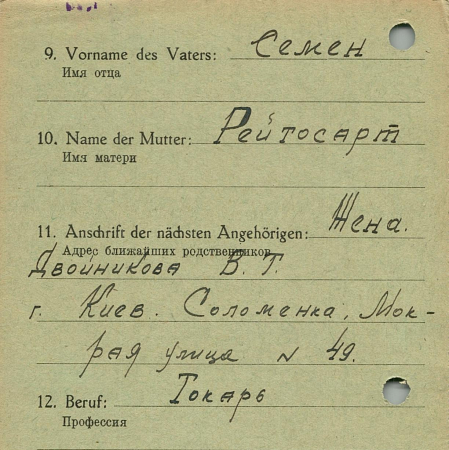 9. Vorname des Vaters: Семен
Имя отца
10. Name der Mutter: Рейтосарт
Имя матери
11. Anschrift der nächsten Angehörigen: Жена.
Адрес ближайших родственников
Двойникова В. Г.
г. Киев. Соломенка, Мок-
рая улица N 49.
12. Beruf: Токарь
Профессия